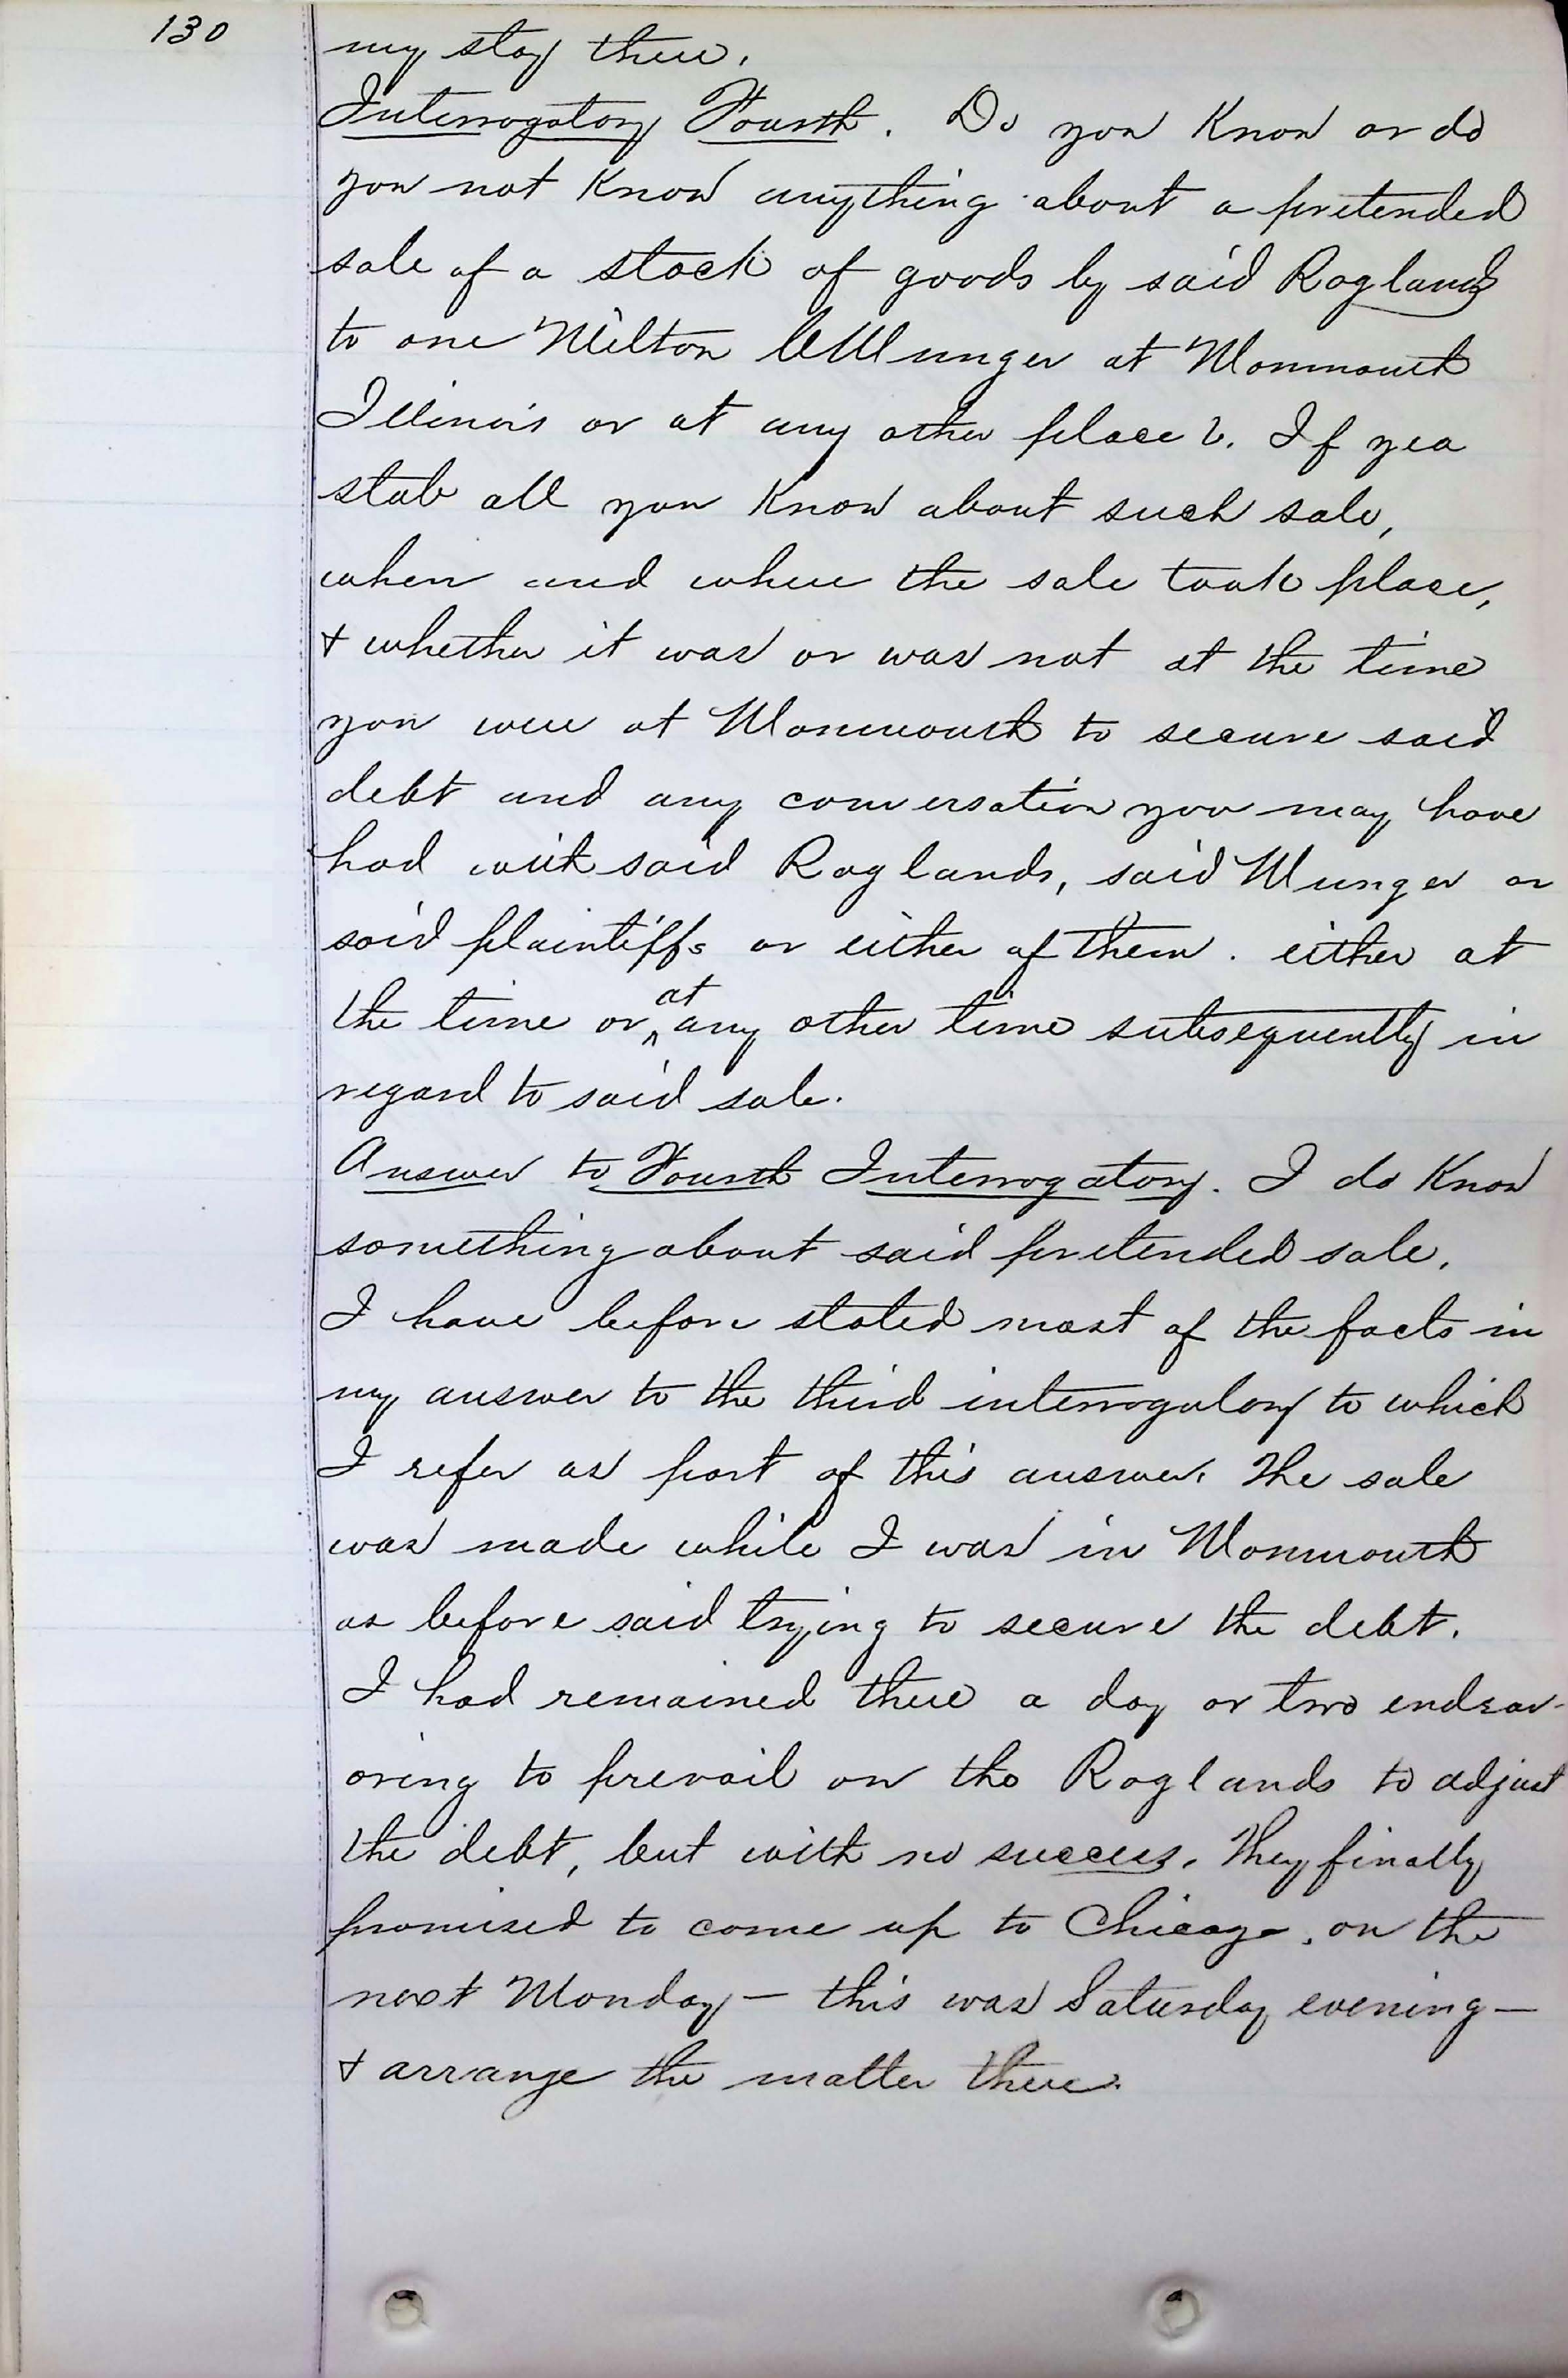 130
my stay there.
Interrogatory Fourth. Do you Know or do
you not Know anything about a pretended
sale of a stock of goods by said Raglands
to one Milton Munger at Monmouth
Illinois or at any other place?. If yea
state all you Know about such sale,
when and where the sale took place,
& whether it was or was not at the time
you were at Monmouth to secure said
debt and any conversation you may have
had with said Raglands, said Munger or
said plaintiffs or either of them. either at
the time or at any other time subsequently in
regard to said sale.
Answer to Fourth Interrogatory. I do Know
something about said pretended sale.
I have before stated most of the facts in
my answer to the third interrogatory to which
I refer as part of this answer. The sale
was made while I was in Monmouth
as before said trying to secure the debt.
I had remained there a day or two endeav-
oring to prevail on the Raglands to adjust
the debt, but with no success. They finally
promised to come up to Chicago. on the
next Monday - this was Saturday evening -
& arrange the matter there.